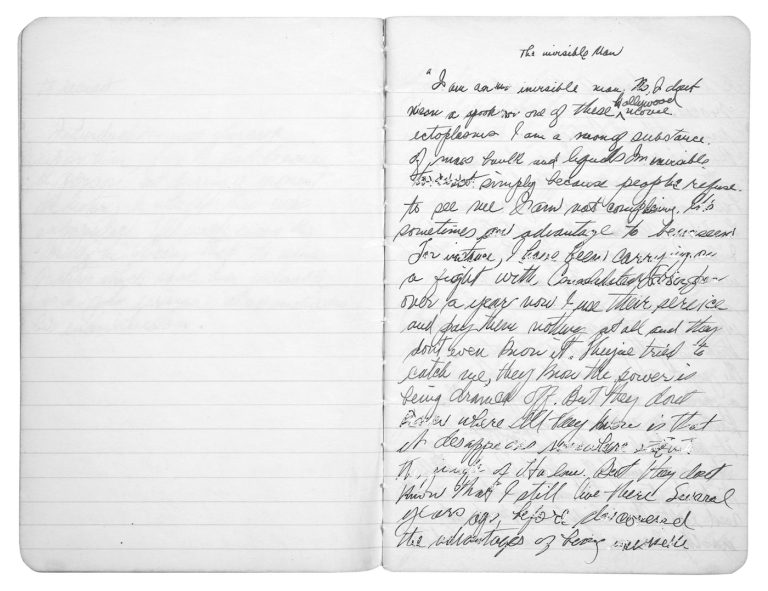 The invisible Man
"I am an invisible man, No, I dont
mean a spook or one of these Hollywood movie
ectoplasms I am a man of substance.
of mass built and liquids Im invisible
simply because people refuse
to see me I am not complaining. It's
sometimes an advantage to be unseen
For instance, I have been carrying on
a fight with, Consolidated Edison for
over a year now I use their service
and pay them nothing at all and they
dont even know it. They've tried to
catch me, they know the power is
being drained off. But they dont
know where All they know is that
it disappears somewhere
jungle of Harlem. But they dont
know that I still live there Several
years ago, before I discovered
the advantages of being